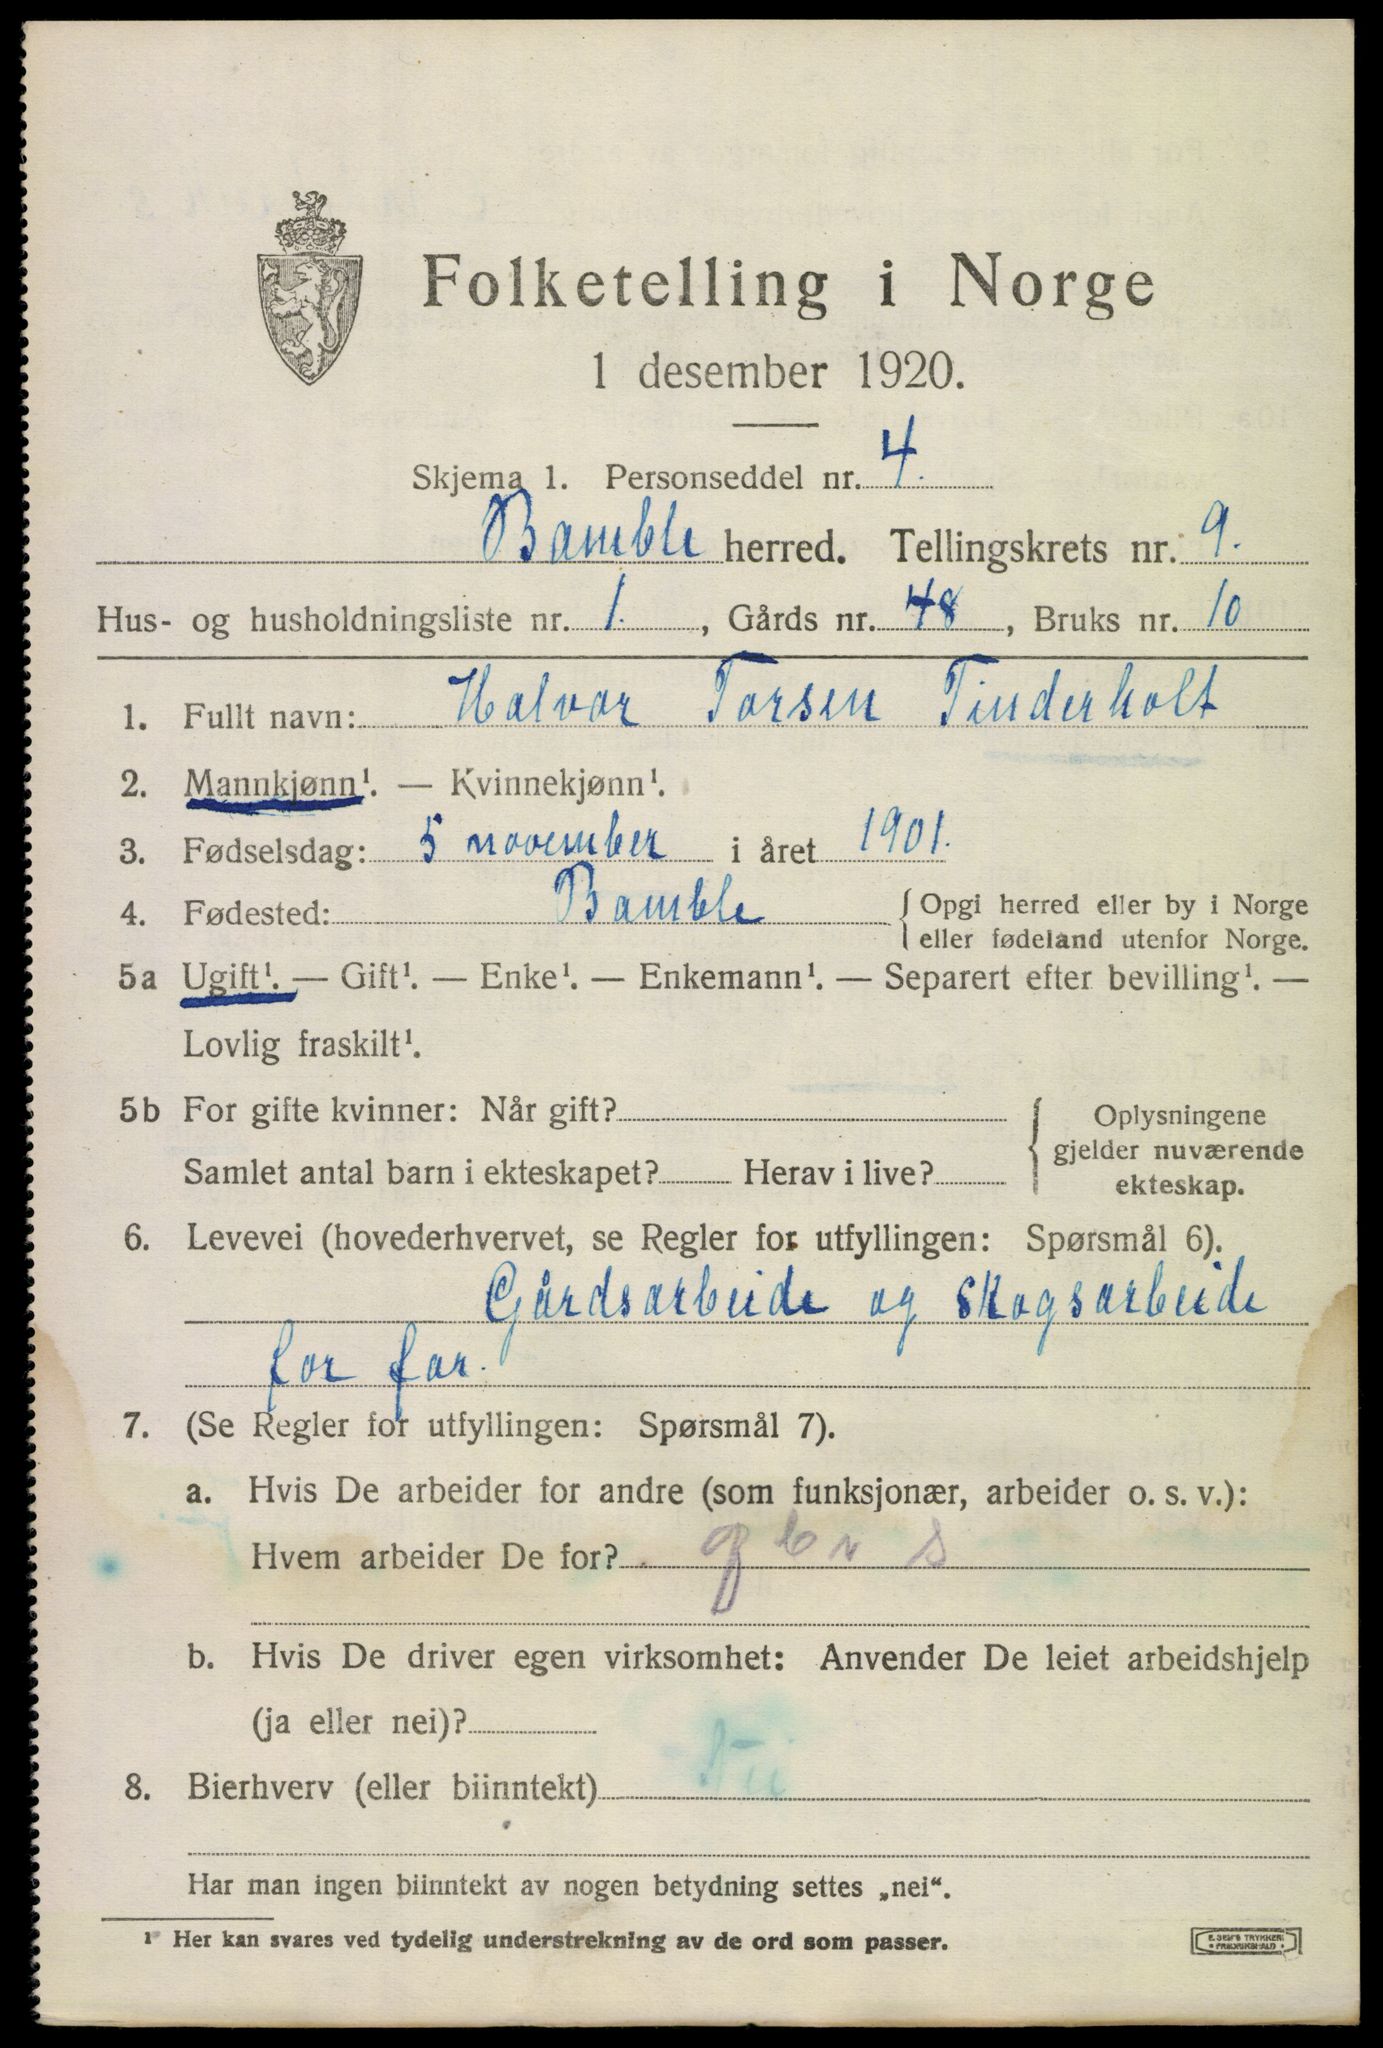 Folketelling i Norge
1 desember 1920.
Skjema 1. Personseddel nr. 4.
Bamble herred. Tellingskrets nr. 9.
Hus- og husholdningsliste nr. 1. , Gårds nr. 48 , Bruks nr. 10
1. Fullt navn: Halvor Torsen Tinderholt
2. Mannkjønn¹. — Kvinnekjønn¹.
3. Fødselsdag: 5 november i året 1901.
4. Fødested: Bamble { Opgi herred eller by i Norge
eller fødeland utenfor Norge.
5a Ugift¹. — Gift¹. — Enke¹. — Enkemann¹. — Separert efter bevilling¹. —
Lovlig fraskilt¹.
5b For gifte kvinner: Når gift?
Samlet antal barn i ekteskapet? Herav i live?
Oplysningene
gjelder nuværende
ekteskap.
6. Levevei (hovederhvervet, se Regler for utfyllingen: Spørsmål 6).
Gårdsarbeide og skogsarbeide
for far.
7. (Se Regler for utfyllingen: Spørsmål 7).
a. Hvis De arbeider for andre (som funksjonær, arbeider o. s. v.):
Hvem arbeider De for?
b. Hvis De driver egen virksomhet: Anvender De leiet arbeidshjelp
(ja eller nei)?
8. Bierhverv (eller biinntekt)
Har man ingen biinntekt av nogen betydning settes „nei“.
¹ Her kan svares ved tydelig understrekning av de ord som passer.
E. SEM'S TRYKKERI
FREDRIKSHALD